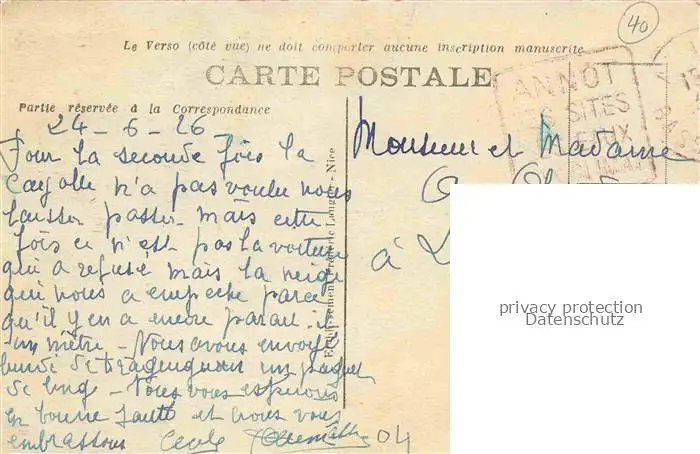 40
Le Verso (côté vue) ne doit comporter aucune inscription manuscrite
CARTE POSTALE
ANNOT
SITES
Partie réservée à la Correspondance
24-6-26
Monsieur et Madame
à
Pour la seconde fois la
Cayolle n'a pas voulu nous
laisser passer - mais cette
fois ce n'est pas la voiture
qui a refusé mais la neige
qui nous a empeché parce
qu'il y en a encore parait-il
un mètre - Nous avons envoyé
lundi de un paquet
de linge - Nous vous espérons
en bonne santé et nous vous
embrassons Cécile
04
Nice
privacy protection
Datenschutz